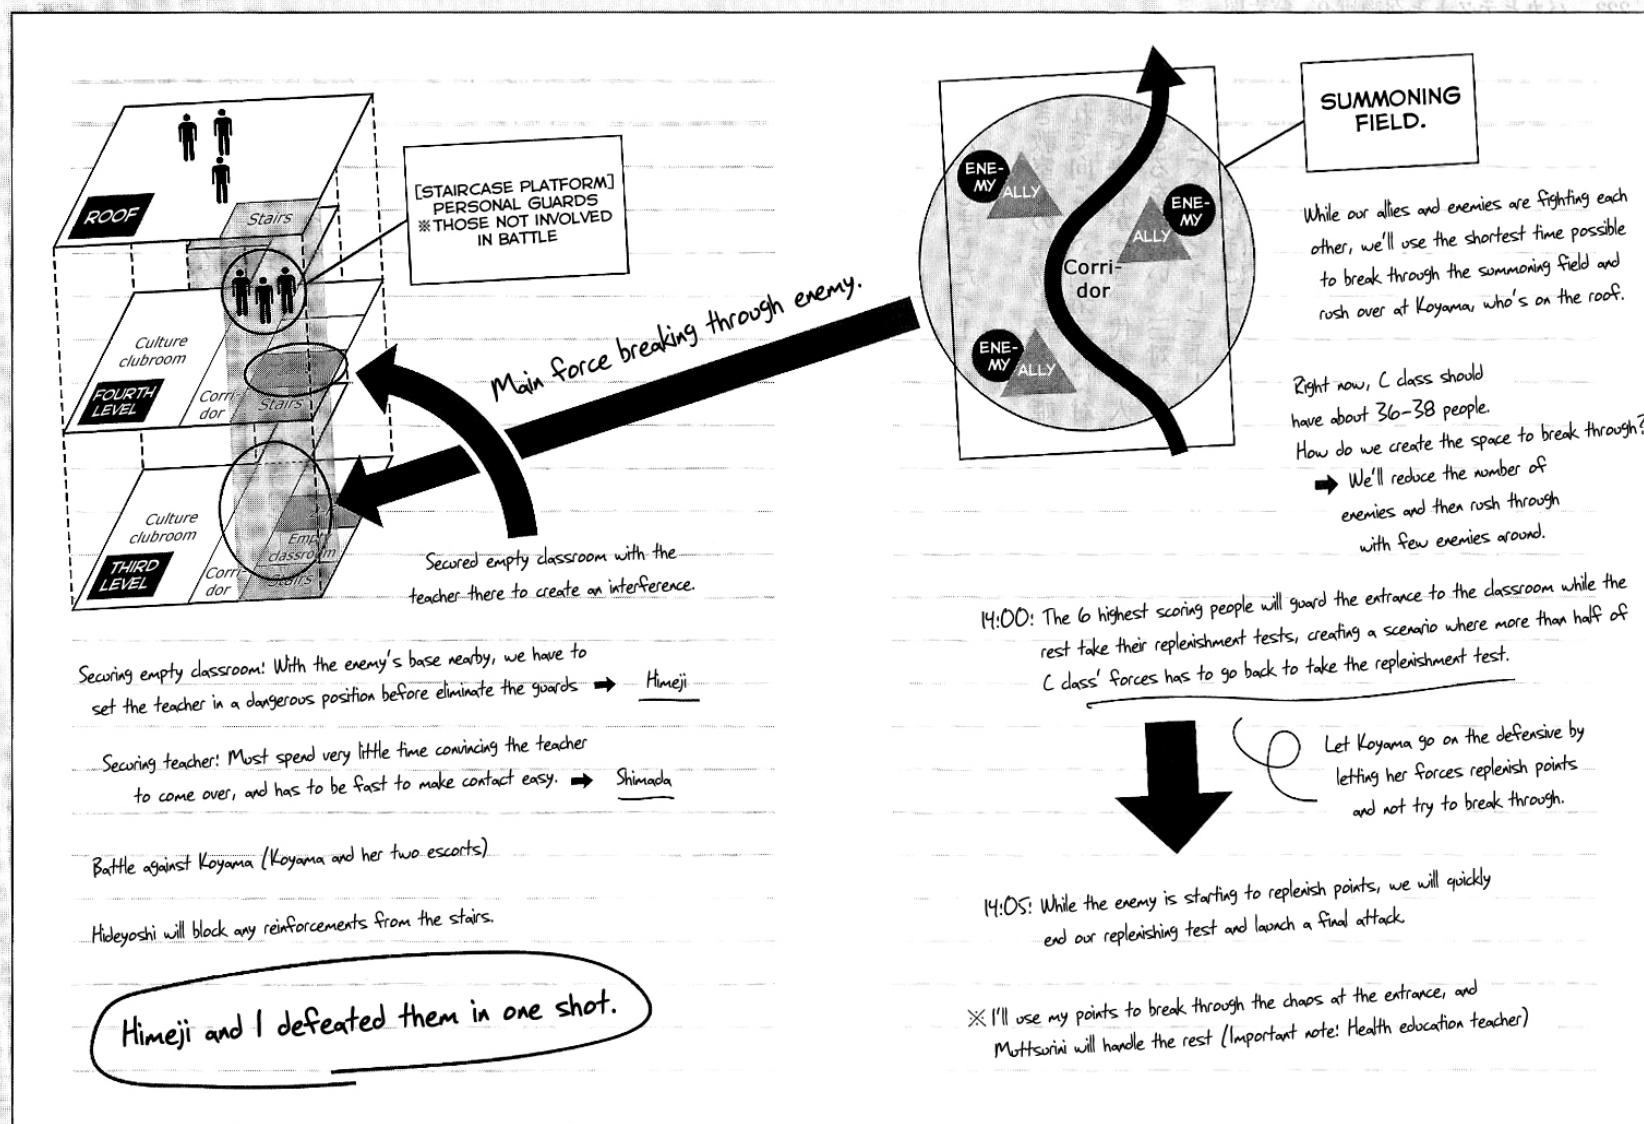 ROOF
Stairs
[STAIRCASE PLATFORM]
PERSONAL GUARDS
※THOSE NOT INVOLVED
IN BATTLE
Culture
clubroom
FOURTH
LEVEL
Corri-
dor
Stairs
Culture
clubroom
THIRD
LEVEL
Corri-
dor
Empty
classroom
Stairs
Main force breaking through enemy.
Secured empty classroom with the
teacher there to create an interference.
Securing empty classroom: With the enemy's base nearby, we have to
set the teacher in a dangerous position before eliminate the guards ➡ Himeji
Securing teacher: Must spend very little time convincing the teacher
to come over, and has to be fast to make contact easy. ➡ Shimada
Battle against Koyama (Koyama and her two escorts)
Hideyoshi will block any reinforcements from the stairs.
Himeji and I defeated them in one shot.
SUMMONING
FIELD.
ENE-
MY
ALLY
ENE-
MY
ALLY
Corri-
dor
ENE-
MY
ALLY
While our allies and enemies are fighting each
other, we'll use the shortest time possible
to break through the summoning field and
rush over at Koyama, who's on the roof.
Right now, C class should
have about 36-38 people.
How do we create the space to break through?
➡ We'll reduce the number of
enemies and then rush through
with few enemies around.
14:00: The 6 highest scoring people will guard the entrance to the classroom while the
rest take their replenishment tests, creating a scenario where more than half of
C class' forces has to go back to take the replenishment test.
Let Koyama go on the defensive by
letting her forces replenish points
and not try to break through.
14:05: While the enemy is starting to replenish points, we will quickly
end our replenishing test and launch a final attack.
※ I'll use my points to break through the chaos at the entrance, and
Muttsurini will handle the rest (Important note: Health education teacher)